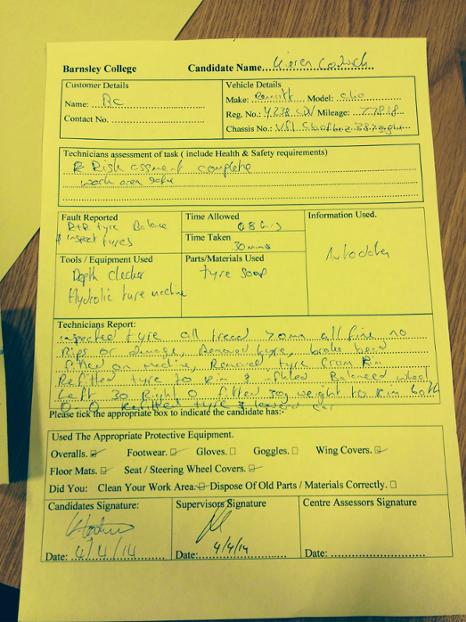 Barnsley College Candidate Name Kieren
Customer Details
Name: BC
Contact No.
Vehicle Details
Make: Renault Model: Clio
Reg. No.: Y238 Mileage: 77818
Chassis No.: VF1
Technicians assessment of task ( include Health & Safety requirements)
Risk assment complete
work area safe
Fault Reported
R+R tyre Balance
& inspect tyres
Time Allowed
0.8 hrs
Time Taken
30 mins
Information Used.
Autodata
Tools / Equipment Used
Depth checker
Hydrolic tyre machine
Parts/Materials Used
tyre soap
Technicians Report:
inspected tyre all tread 7mm all fine no
Rips or damage, Removed tyre, brake bead
fitted on machine, Removed tyre from Rim
Refitted tyre to Rim & fitted Balanced wheel
Left 30 Right 0 fitted 30g weight to rim both
0-0 Refitted tyre & lowered car
Please tick the appropriate box to indicate the candidate has:-
Used The Appropriate Protective Equipment.
Overalls. Footwear. Gloves. Goggles. Wing Covers.
Floor Mats. Seat / Steering Wheel Covers.
Did You: Clean Your Work Area. Dispose Of Old Parts / Materials Correctly.
Candidates Signature:
Date: 4/4/14
Supervisors Signature
Date: 4/4/14
Centre Assessors Signature
Date: